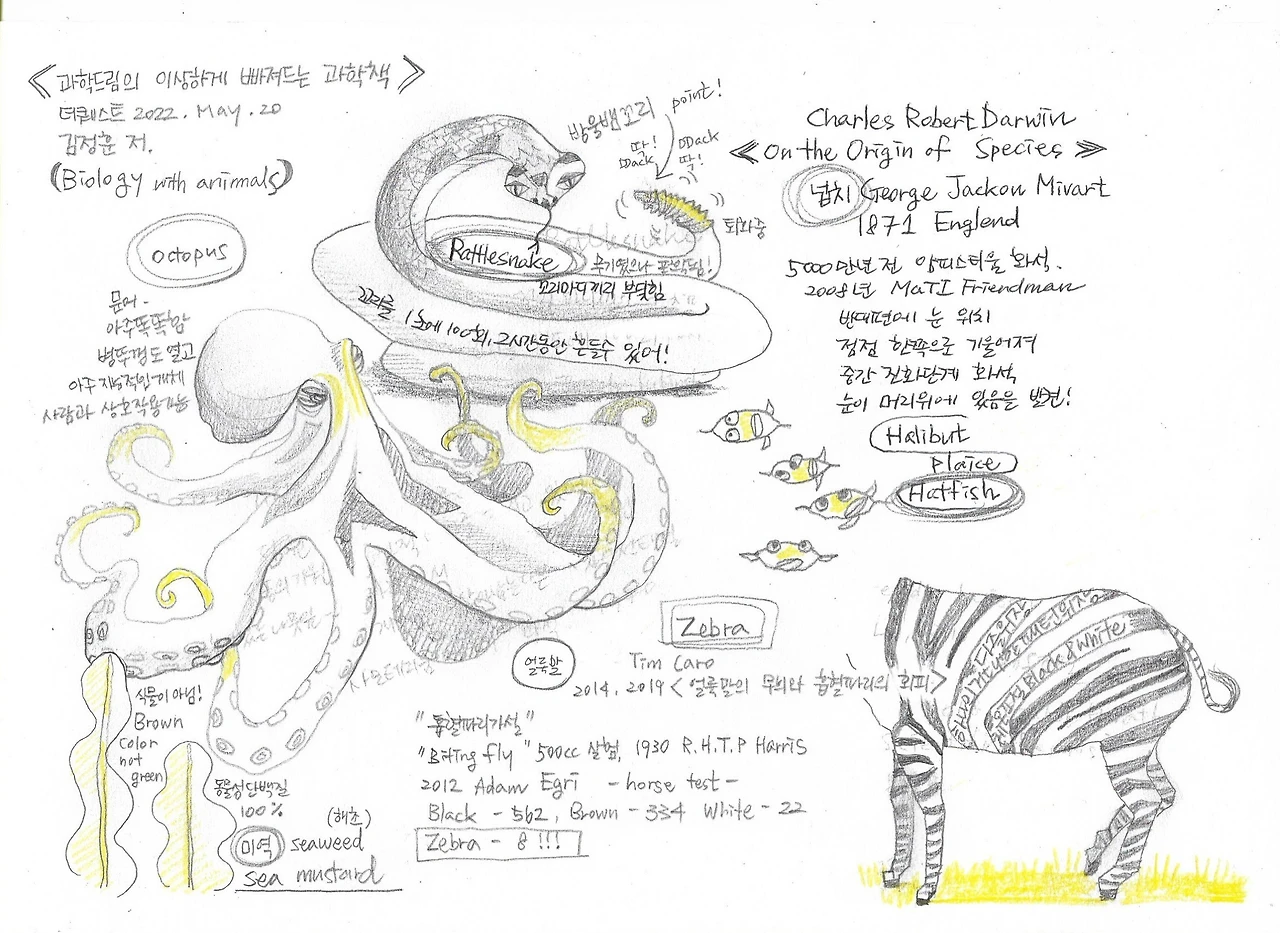 <과학드림의 이상하게 빠져드는 과학책>
더퀘스트 2022. May. 20
김정훈 저.
(Biology with animals)
octopus
문어-
아주똑똑함
병뚜껑도 열고
아주 지능적인개체
사람과 상호작용가능
방울뱀꼬리 point!
딱!
DDack
DDack
딱!
퇴화중
Rattlesnake
꼬리마디끼리 부딪힘
꼬리를 1초에 100회, 2시간동안 흔들수 있어!
Charles Robert Darwin
<On the Origin of Species>
넙치 George Jackon Mivart
1871 Englend
5000만년 전 암피스티움 화석.
2008년 MaTT Friendman
반대편에 눈 위치
점점 한쪽으로 기울어져
중간 진화단계 화석
눈이 머리위에 있음을 발견!
Halibut
Plaice
Hatfish
Zebra
얼룩말
Tim Caro
2014, 2019 <얼룩말의 무늬와 흡혈파리의 회피>
"흡혈파리가설"
"Biting fly" 500cc 실험, 1930 R.H.T.P Harris
2012 Adam Egri - horse test -
Black - 562, Brown - 334 White - 22
Zebra - 8 !!!
Black & White
식물이 아님!
Brown
color
not
green
동물성단백질
100%
(해초)
미역 seaweed
sea mustard